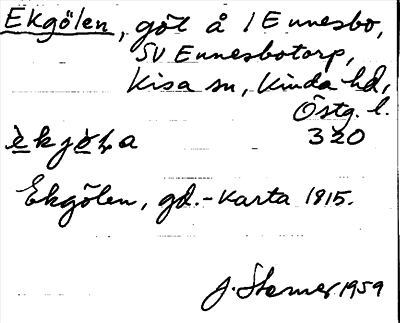 Ekgölen, göl å 1 Ennesbo,
SV Ennesbotorp,
Kisa sn, Kinda hd,
Östg. l.
320
Ekgölen, gd.-karta 1815.
J. Stomer 1959